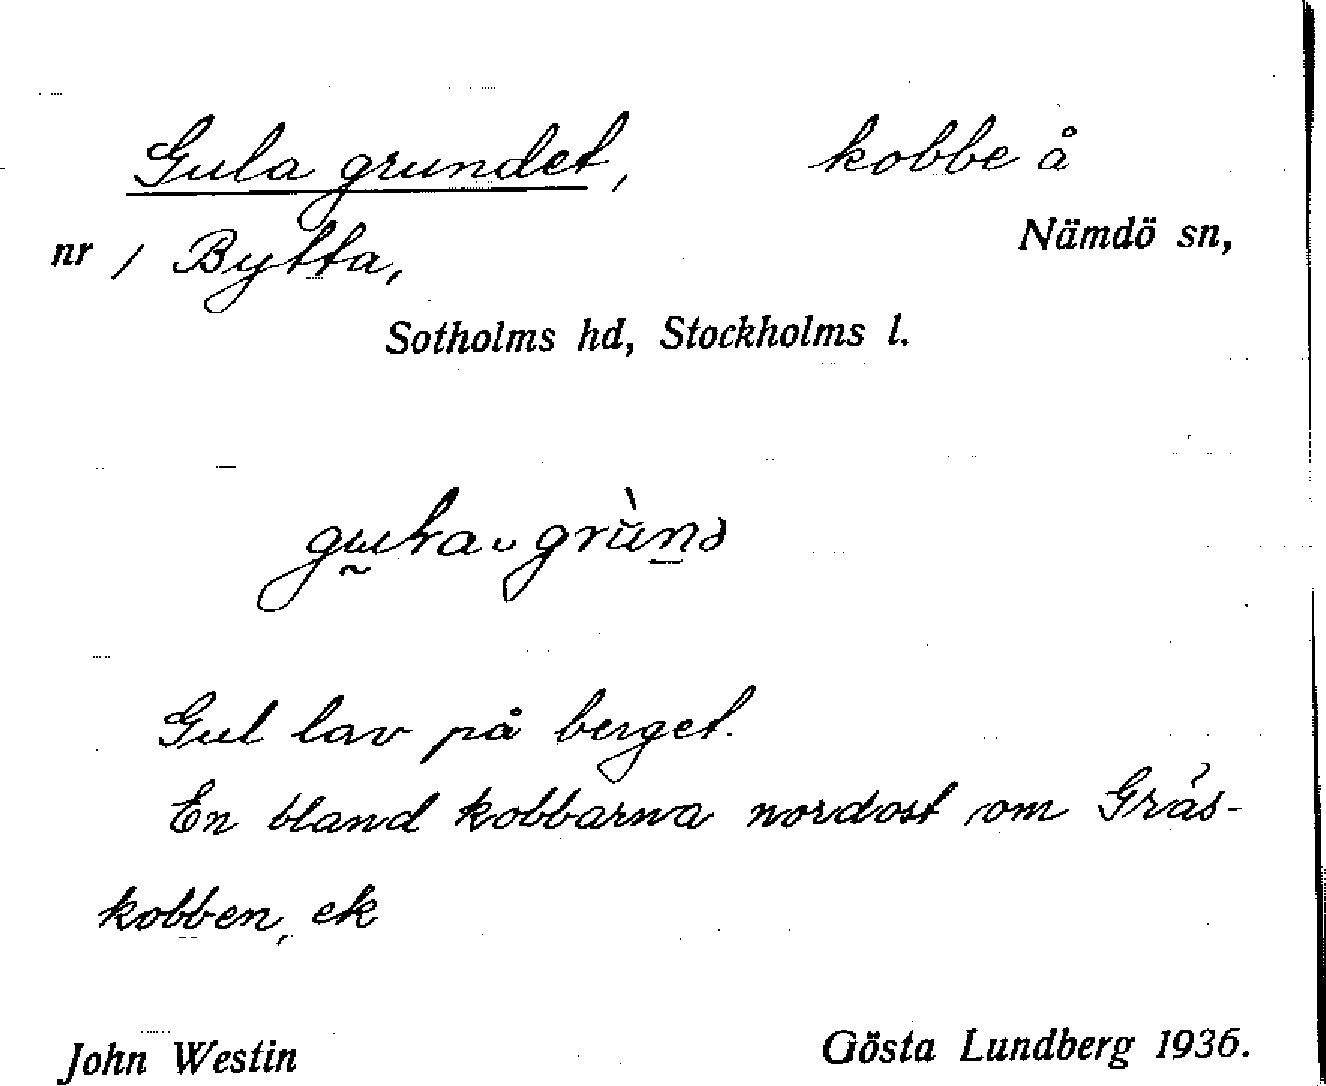 Gula grundet, kobbe å
nr 1 Bytta, Nämdö sn,
Sotholms hd, Stockholms l.
Gul lav på berget.
En bland kobbarna nordost om Gräs-
kobben, ek
John Westin Gösta Lundberg 1936.